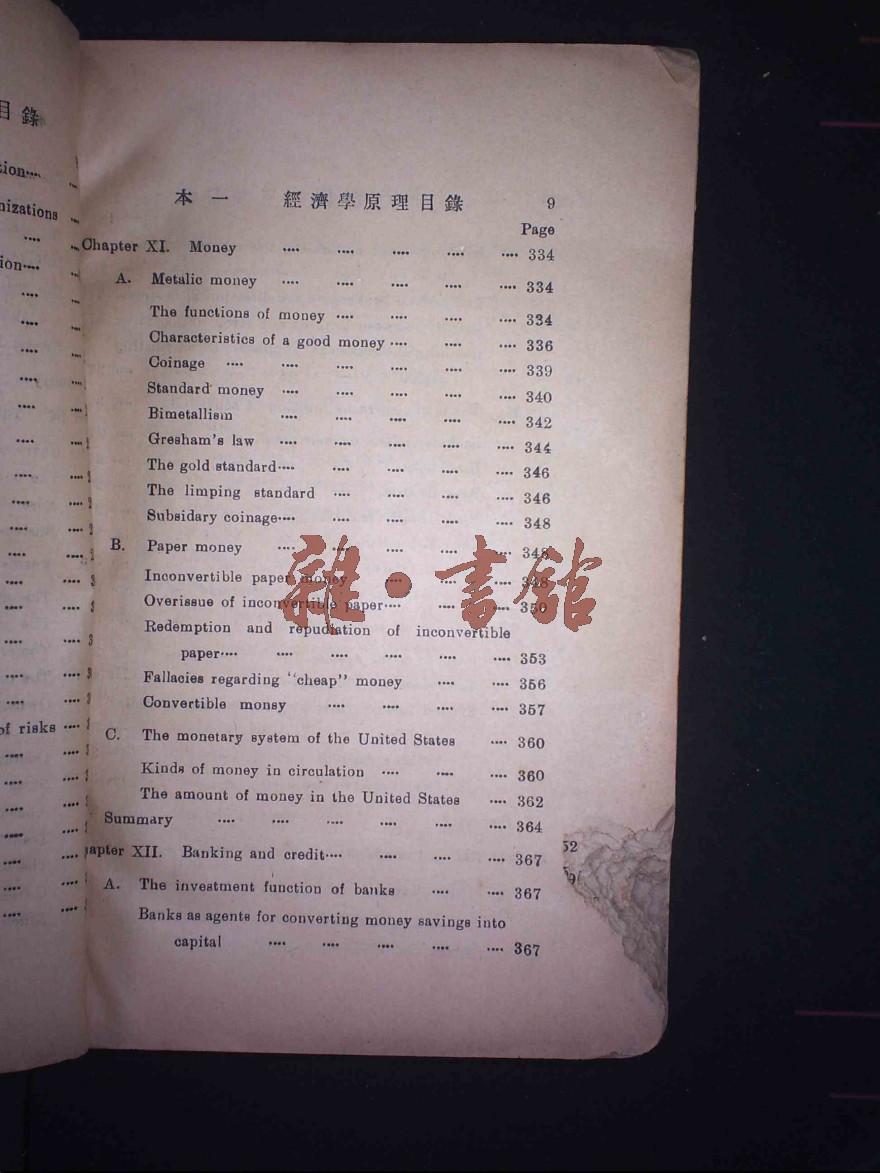 目錄
tion....
nizations ....
....
ion....
of risks ....
本一 經濟學原理目錄 9
Page
Chapter XI. Money .... .... .... .... .... 334
A. Metalic money .... .... .... .... .... 334
The functions of money .... .... .... .... 334
Characteristics of a good money .... .... .... 336
Coinage .... .... .... .... .... 339
Standard money .... .... .... .... .... 340
Bimetallism .... .... .... .... .... 342
Gresham's law .... .... .... .... .... 344
The gold standard.... .... .... .... .... 346
The limping standard .... .... .... .... 346
Subsidary coinage.... .... .... .... .... 348
B. Paper money .... .... .... .... .... 348
Inconvertible paper money .... .... .... 348
Overissue of inconvertible paper.... .... .... 350
Redemption and repudiation of inconvertible
paper.... .... .... .... .... .... 353
Fallacies regarding "cheap" money .... .... 356
Convertible monsy .... .... .... .... 357
C. The monetary system of the United States .... 360
Kinds of money in circulation .... .... .... 360
The amount of money in the United States .... 362
Summary .... .... .... .... .... .... 364
apter XII. Banking and credit.... .... .... .... 367
A. The investment function of banks .... .... 367
Banks as agents for converting money savings into
capital .... .... .... .... .... 367
52
雜·書館